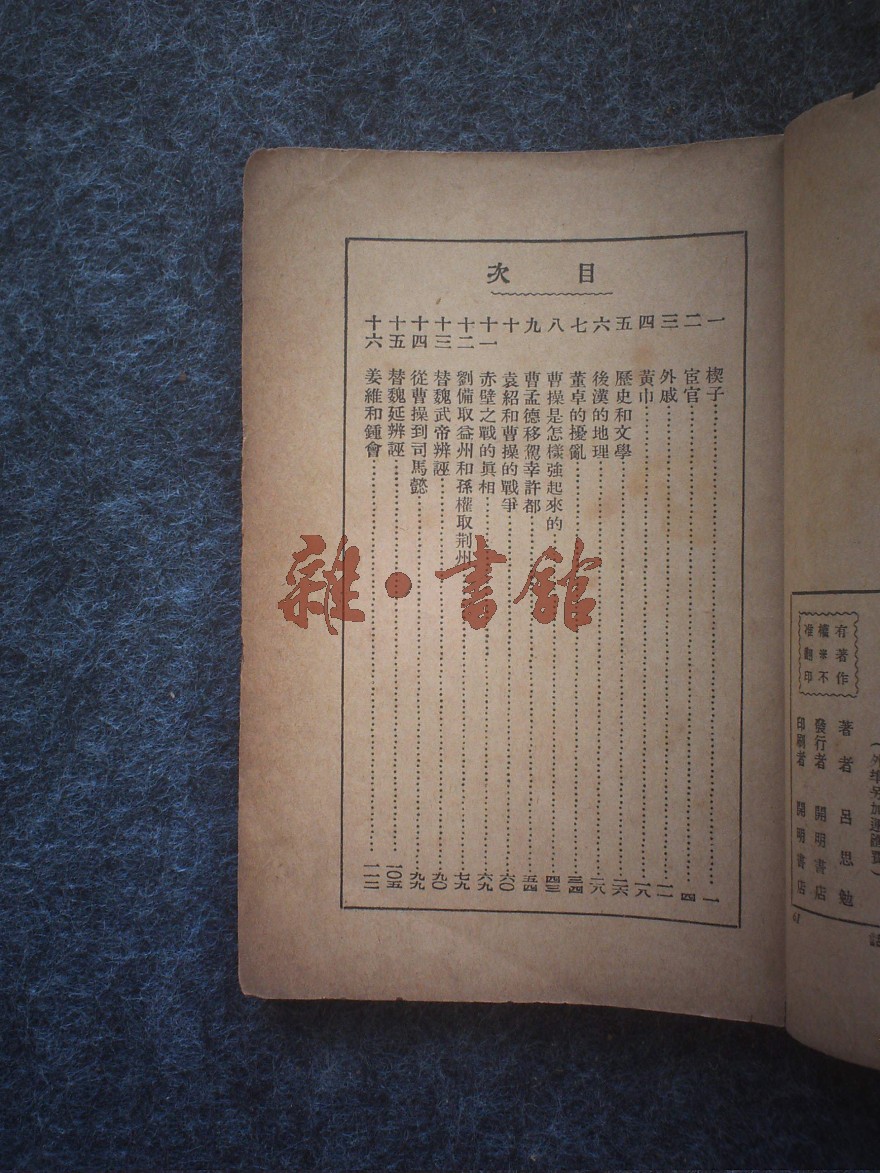 目次
一 楔子 一
二 宦官 四
三 外戚 一一
四 黃巾 一八
五 歷史和文學 二六
六 後漢的地理 二八
七 董卓的擾亂 三四
八 曹操是怎樣強起來的 四三
九 曹孟德移駕幸許都 五四
十 袁紹和曹操的戰爭 六〇
十一 赤壁之戰的眞相 六九
十二 劉備取益州和孫權取荆州 七九
十三 替魏武帝辨誣 九〇
十四 從曹操到司馬懿 九九
十五 替魏延辨誣 一〇五
十六 姜維和鍾會 一一二
雜·書館
有著作
權不
准翻印
著者 呂思勉
發行者 開明書店
印刷者 開明書店